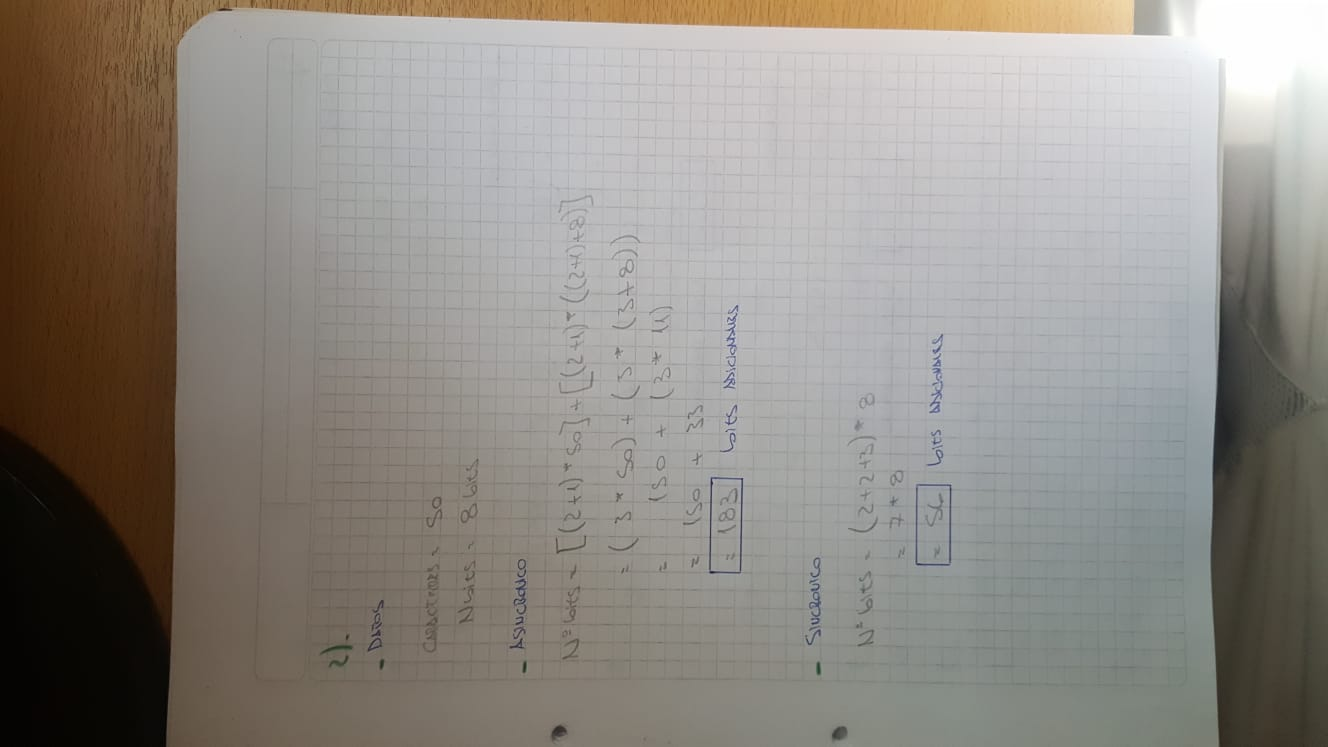 2).
- DATOS
CARACTERES = 50
N bits = 8 bits
- ASINCRONICO
Nº bits = [(2+1)*50]+[(2+1)*((2+1)+8)]
= (3*50)+(3*(3+8))
= 150 + (3*11)
= 150 + 33
= 183 bits ADICIONALES
- SINCRONICO
Nº bits = (2+2+3)*8
= 7*8
= 56 bits ADICIONALES